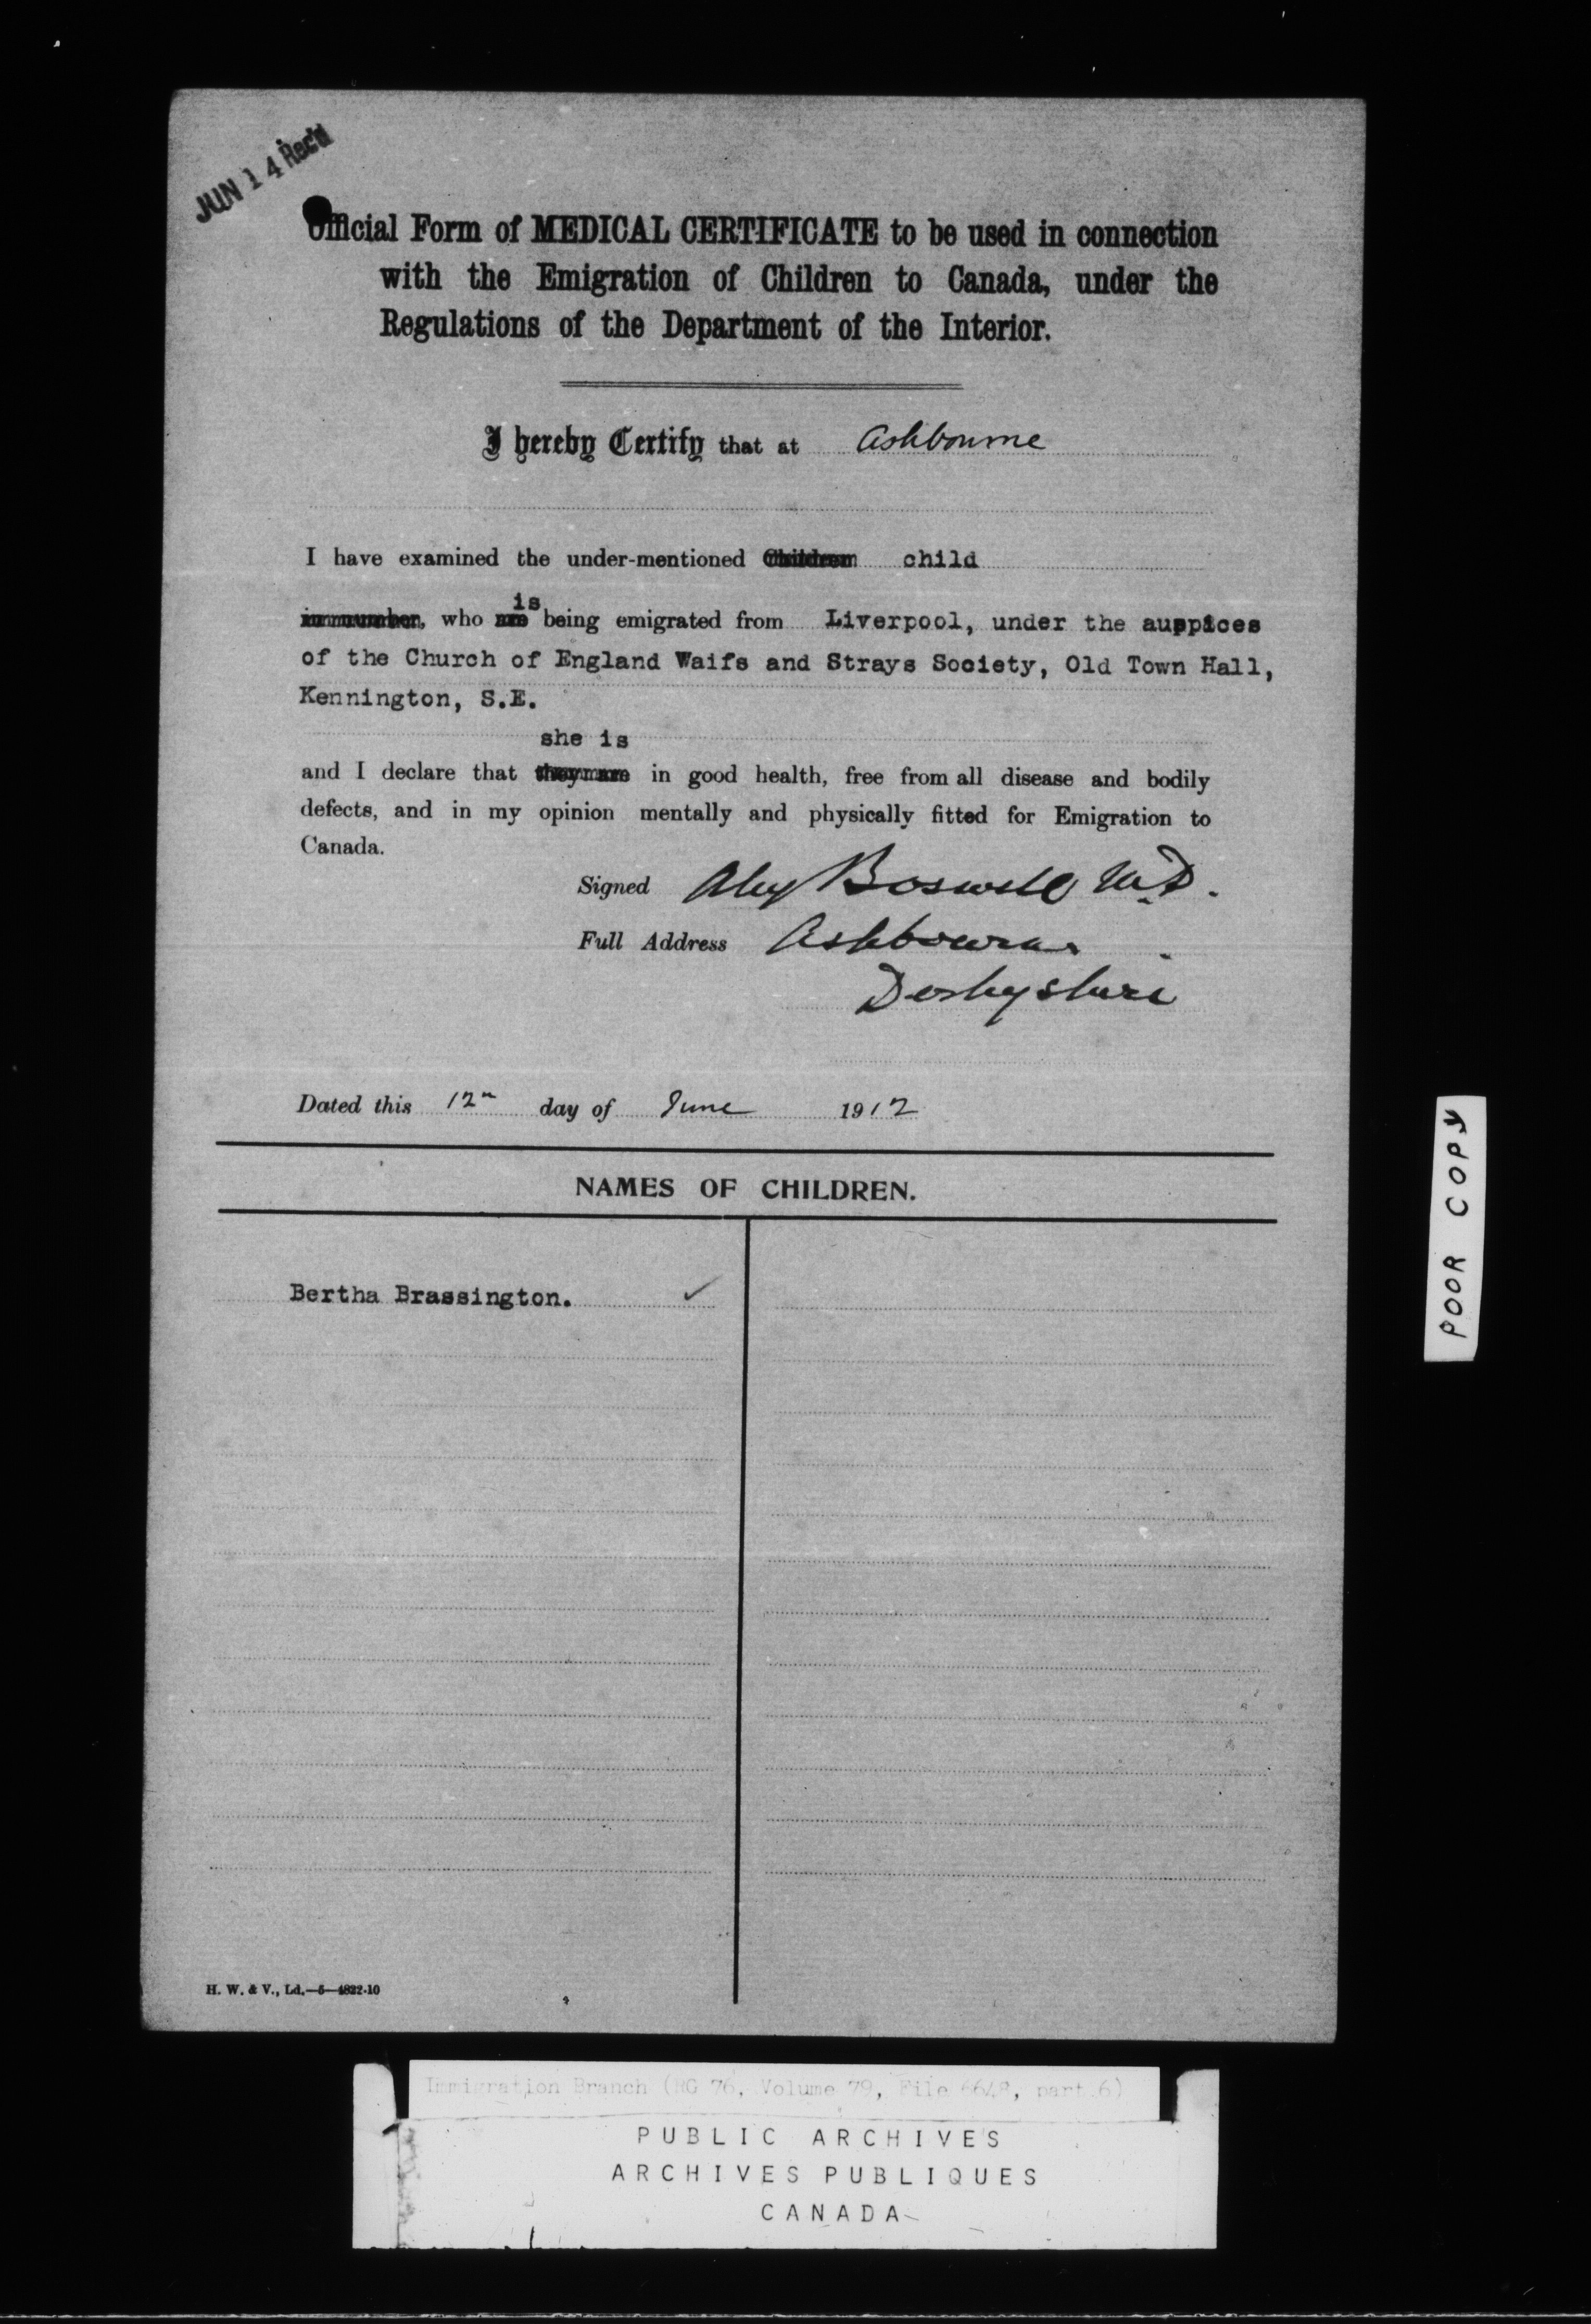 JUN 14 Rec'd
Official Form of MEDICAL CERTIFICATE to be used in connection
with the Emigration of Children to Canada, under the
Regulations of the Department of the Interior.
I hereby Certify that at Ashbourne
I have examined the under-mentioned Children child
is
in number, who are being emigrated from Liverpool, under the auspices
of the Church of England Waifs and Strays Society, Old Town Hall,
Kennington, S.E.
she is
and I declare that they are in good health, free from all disease and bodily
defects, and in my opinion mentally and physically fitted for Emigration to
Canada.
Signed Alex Boswell M.D.
Full Address Ashbourne
Derbyshire
Dated this 12th day of June 1912
NAMES OF CHILDREN.
Bertha Brassington. ✓
H. W. & V., Ld.—5—4822-10
POOR COPY
Immigration Branch (RG 76, Volume 79, File 6648, part 6)
PUBLIC ARCHIVES
ARCHIVES PUBLIQUES
CANADA